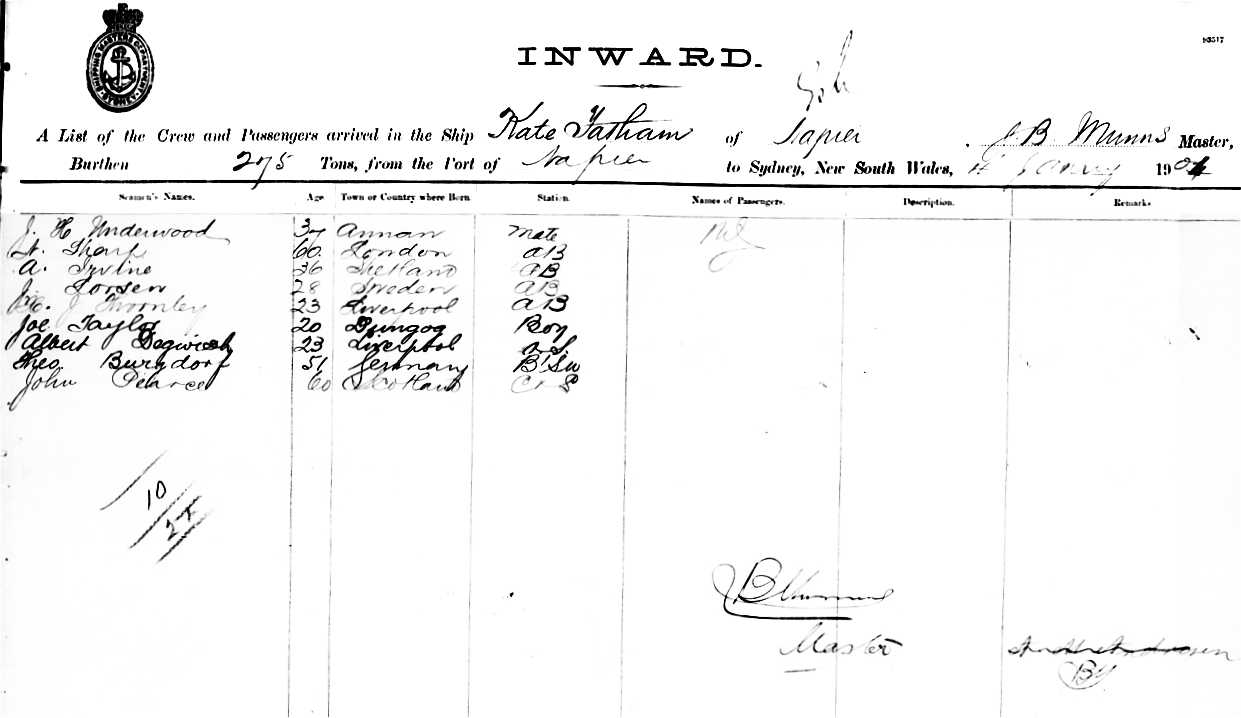 SHIPPING MASTERS DEPARTMENT SYDNEY
93517
INWARD.
A List of the Crew and Passengers arrived in the Ship Kate Tatham of Napier J B Munns Master,
Burthen 275 Tons, from the Port of Napier to Sydney, New South Wales, 1904
Seamen's Names. Age Town or Country where Born Station. Names of Passengers. Description. Remarks
J. H Underwood 37 Annan Mate Nil
Sharp 60 London AB
A. Irvine 36 Shetland AB
J. Larsen 28 Sweden AB
J Thornley 23 Liverpool AB
Joe Taylor 20 Dungog Boy
Albert 23 Liverpool
Theo Burgdorf 51 Germany
John Pearce 60 Scotland
10
JB Munns
Master